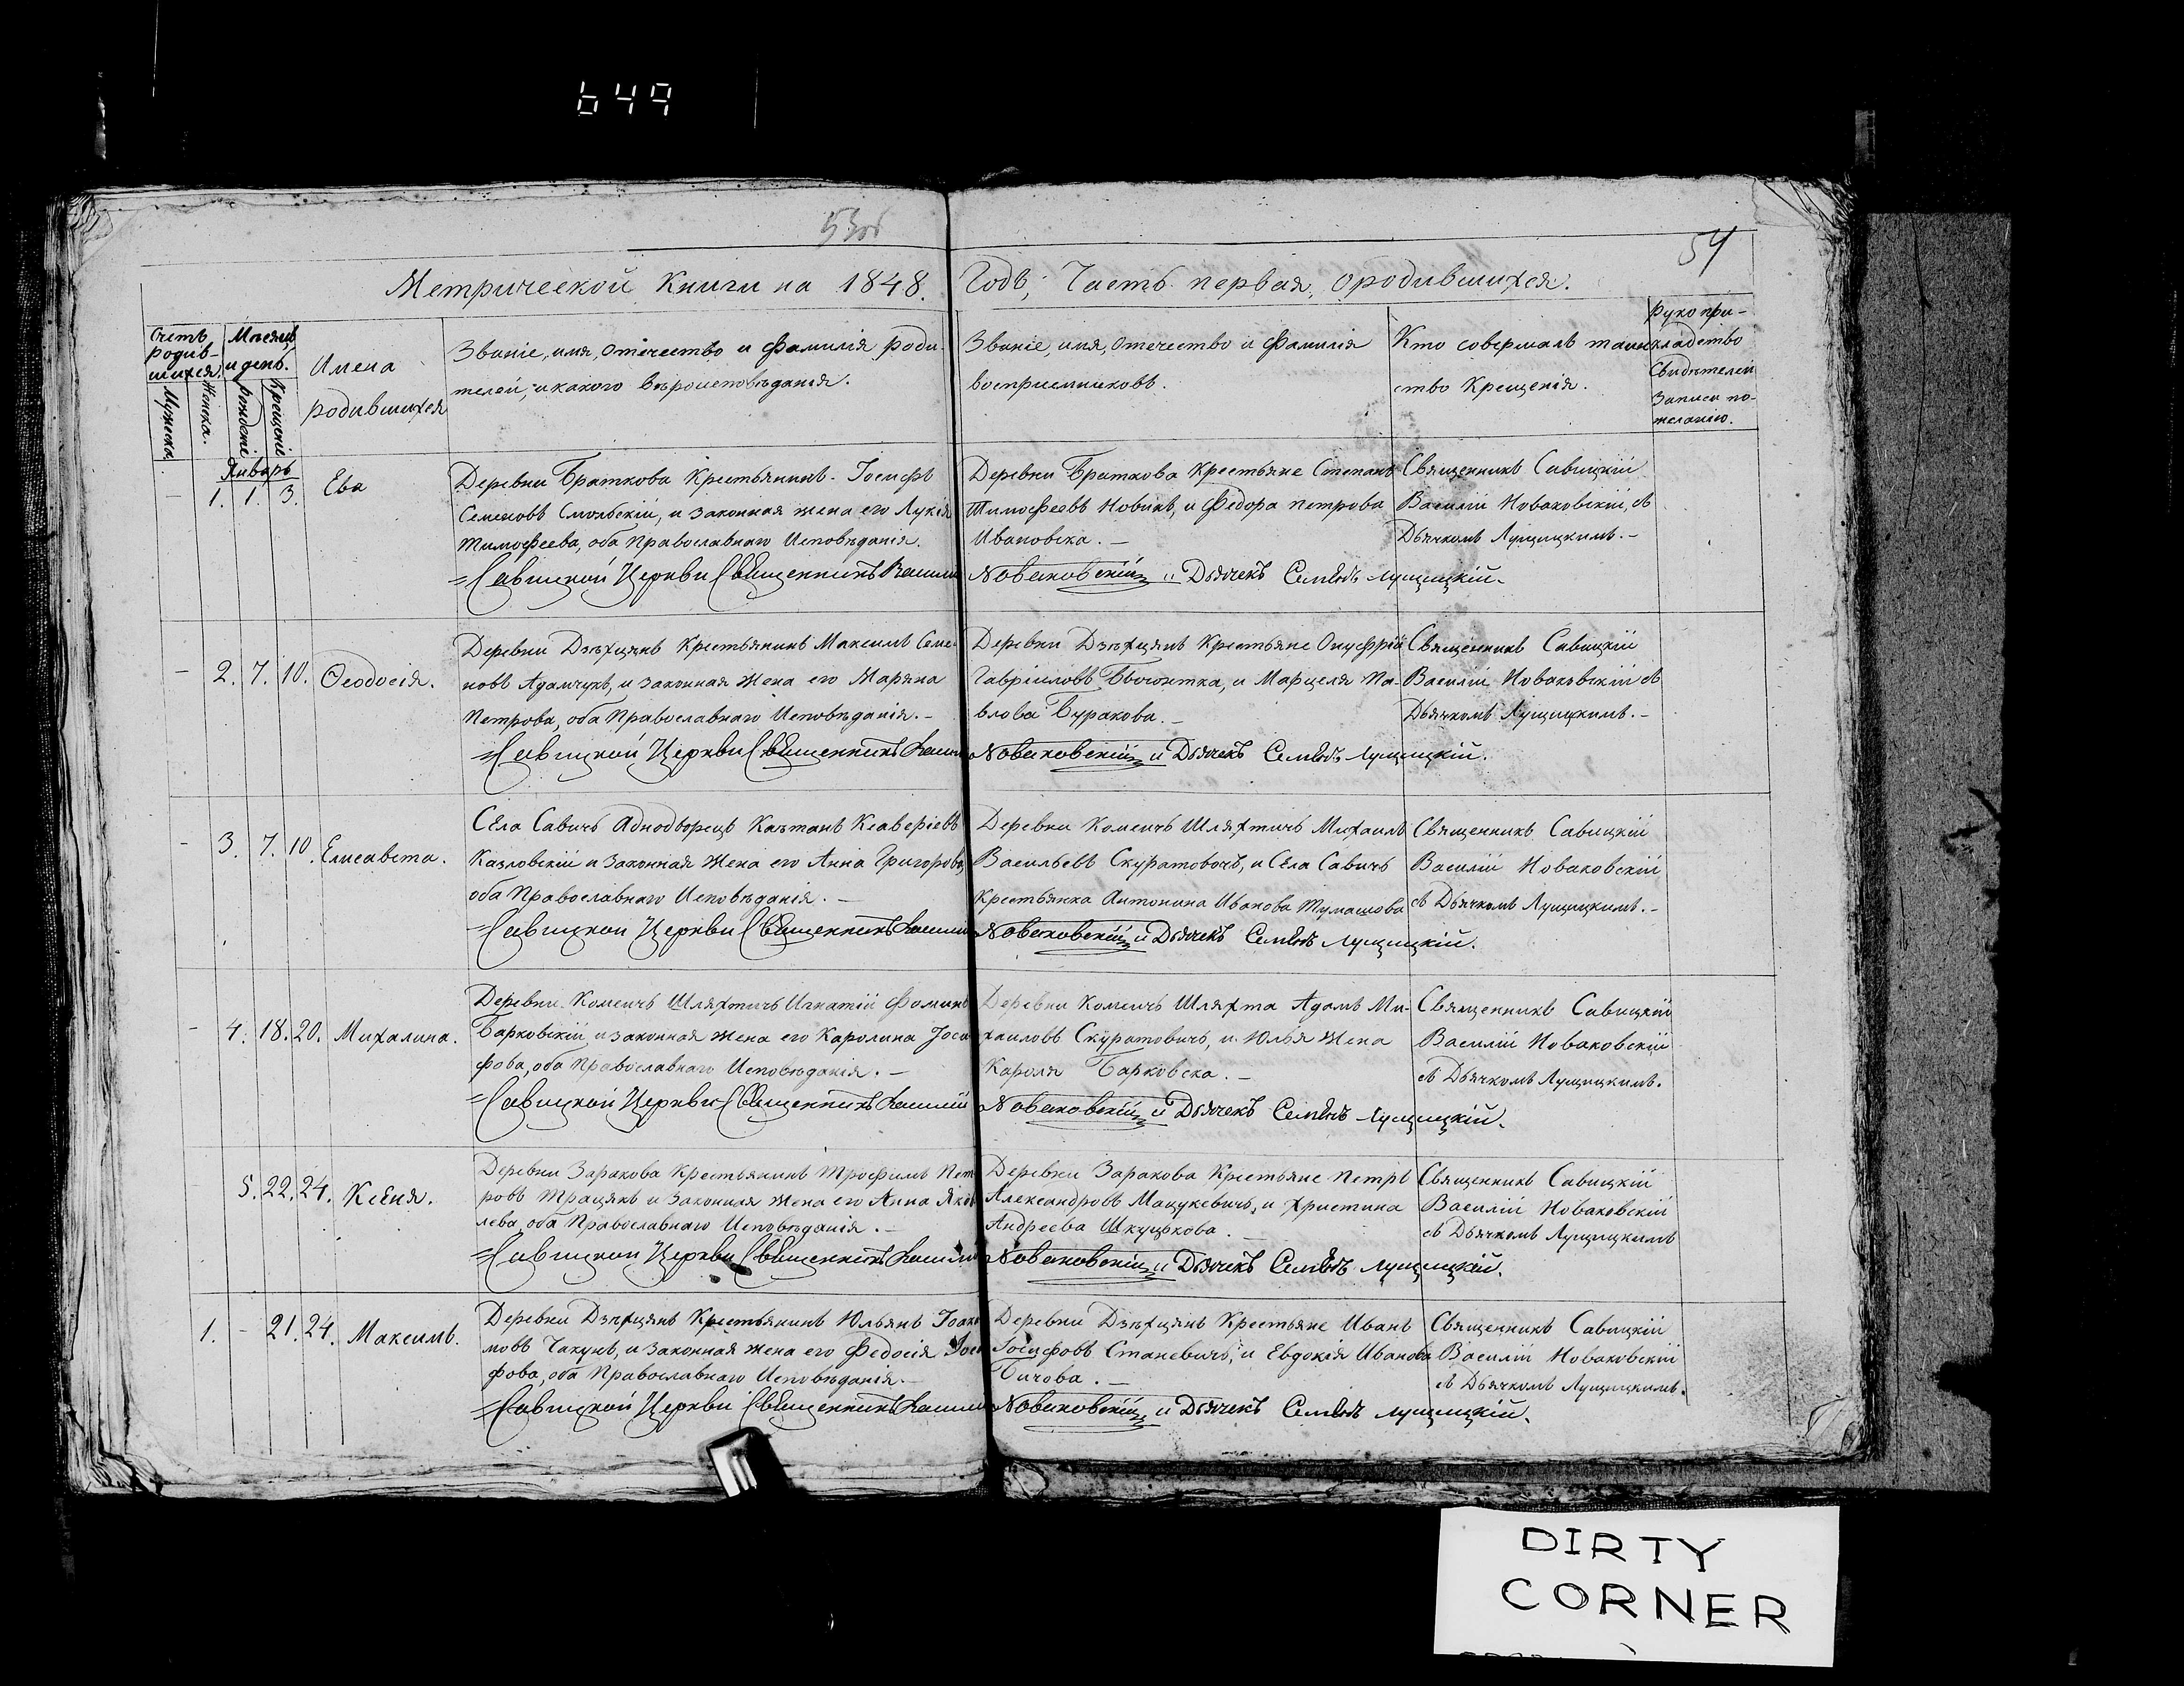 649
53об
54
Метрической Книги на 1848. Годъ, Часть первая, о родившихся.
Счетъ родив-
шихся.
Мужеска.
Женска.
Месяцъ
и день.
Рожденія
Крещенія
Имена
родившихся
Званіе, имя, отечество и фамилія роди-
телей, и какого вѣроисповѣданія.
Званіе, имя, отечество и фамилія
воспріемниковъ.
Кто совершалъ таин-
ство Крещенія.
Рукопри-
кладство
Свидѣтелей
Записи по-
желанію.
Январь
- 1. 1. 3. Ева
Деревни Браткова Крестьянинъ Іосифъ
Семеновъ Смольскій, и законная жена его Лукія
Тимофеева, оба Православнаго Исповѣданія.
Деревни Браткова Крестьяне Степанъ
Тимофеевъ Новикъ, и Федора Петрова
Ивановска. -
Священникъ Савицкій
Василій Новаковскій, съ
Дьячкомъ Лущицкимъ. -
=Савицкой Церкви Священникъ Василій Новаковскій и Дьячекъ Лущицкій.
- 2. 7. 10. Ѳеодосія.
Деревни Дзѣхцянъ Крестьянинъ Максимъ Семе-
новъ Адамчукъ, и законная жена его Маряна
Петрова, оба Православнаго Исповѣданія. -
Деревни Дзѣхцянъ Крестьяне Онуфрій
Гавріиловъ и Марцеля Па-
влова Буракова. -
Священникъ Савицкій
Василій Новаковскій съ
Дьячкомъ Лущицкимъ. -
=Савицкой Церкви Священникъ Василій Новаковскій и Дьячекъ Лущицкій.
- 3. 7. 10. Елисавета.
Села Савичъ Аднодворецъ Каэтанъ Ксаверіевъ
Казловскій и законная жена его Анна Григорова,
оба Православнаго Исповѣданія. -
Деревни Комсичъ Шляхтичъ Михаилъ
Васильевъ Скуратовочъ, и Села Савичъ
Крестьянка Антонина Иванова Тумашова
Священникъ Савицкій
Василій Новаковскій
съ Дьячкомъ Лущицкимъ. -
=Савицкой Церкви Священникъ Василій Новаковскій и Дьячекъ Лущицкій.
- 4. 18. 20. Михалина.
Деревни Комсичъ Шляхтичъ Игнатій Фоминъ
Барковскій и законная жена его Каролина Іоси-
фова, оба Православнаго Исповѣданія. -
Деревни Комсичъ Шляхта Адамъ Ми-
хаиловъ Скуратовичъ, и Юлья жена
Кароля Барковска. -
Священникъ Савицкій
Василій Новаковскій
съ Дьячкомъ Лущицкимъ.
=Савицкой Церкви Священникъ Василій Новаковскій и Дьячекъ Лущицкій.
5. 22. 24. Ксеня.
Деревни Заракова Крестьянинъ Трофимъ Пет-
ровъ Трацякъ и законная жена его Анна Яков-
лева, оба Православнаго Исповѣданія. -
Деревни Заракова Крестьяне Петръ
Александровъ Мацукевичъ, и Христина
Андреева Шкуцькова. -
Священникъ Савицкій
Василій Новаковскій
съ Дьячкомъ Лущицкимъ
=Савицкой Церкви Священникъ Василій Новаковскій и Дьячекъ Лущицкій.
1. - 21. 24. Максимъ.
Деревни Дзѣхцянъ Крестьянинъ Юльянъ Іоаки-
мовъ Чакунъ, и законная жена его Федосія Іоси-
фова, оба Православнаго Исповѣданія. -
Деревни Дзѣхцянъ Крестьяне Иванъ
Іосифовъ Станевичъ, и Евдокія Иванова
Бичова. -
Священникъ Савицкій
Василій Новаковскій
съ Дьячкомъ Лущицкимъ.
=Савицкой Церкви Священникъ Василій Новаковскій и Дьячекъ Лущицкій.
DIRTY
CORNER